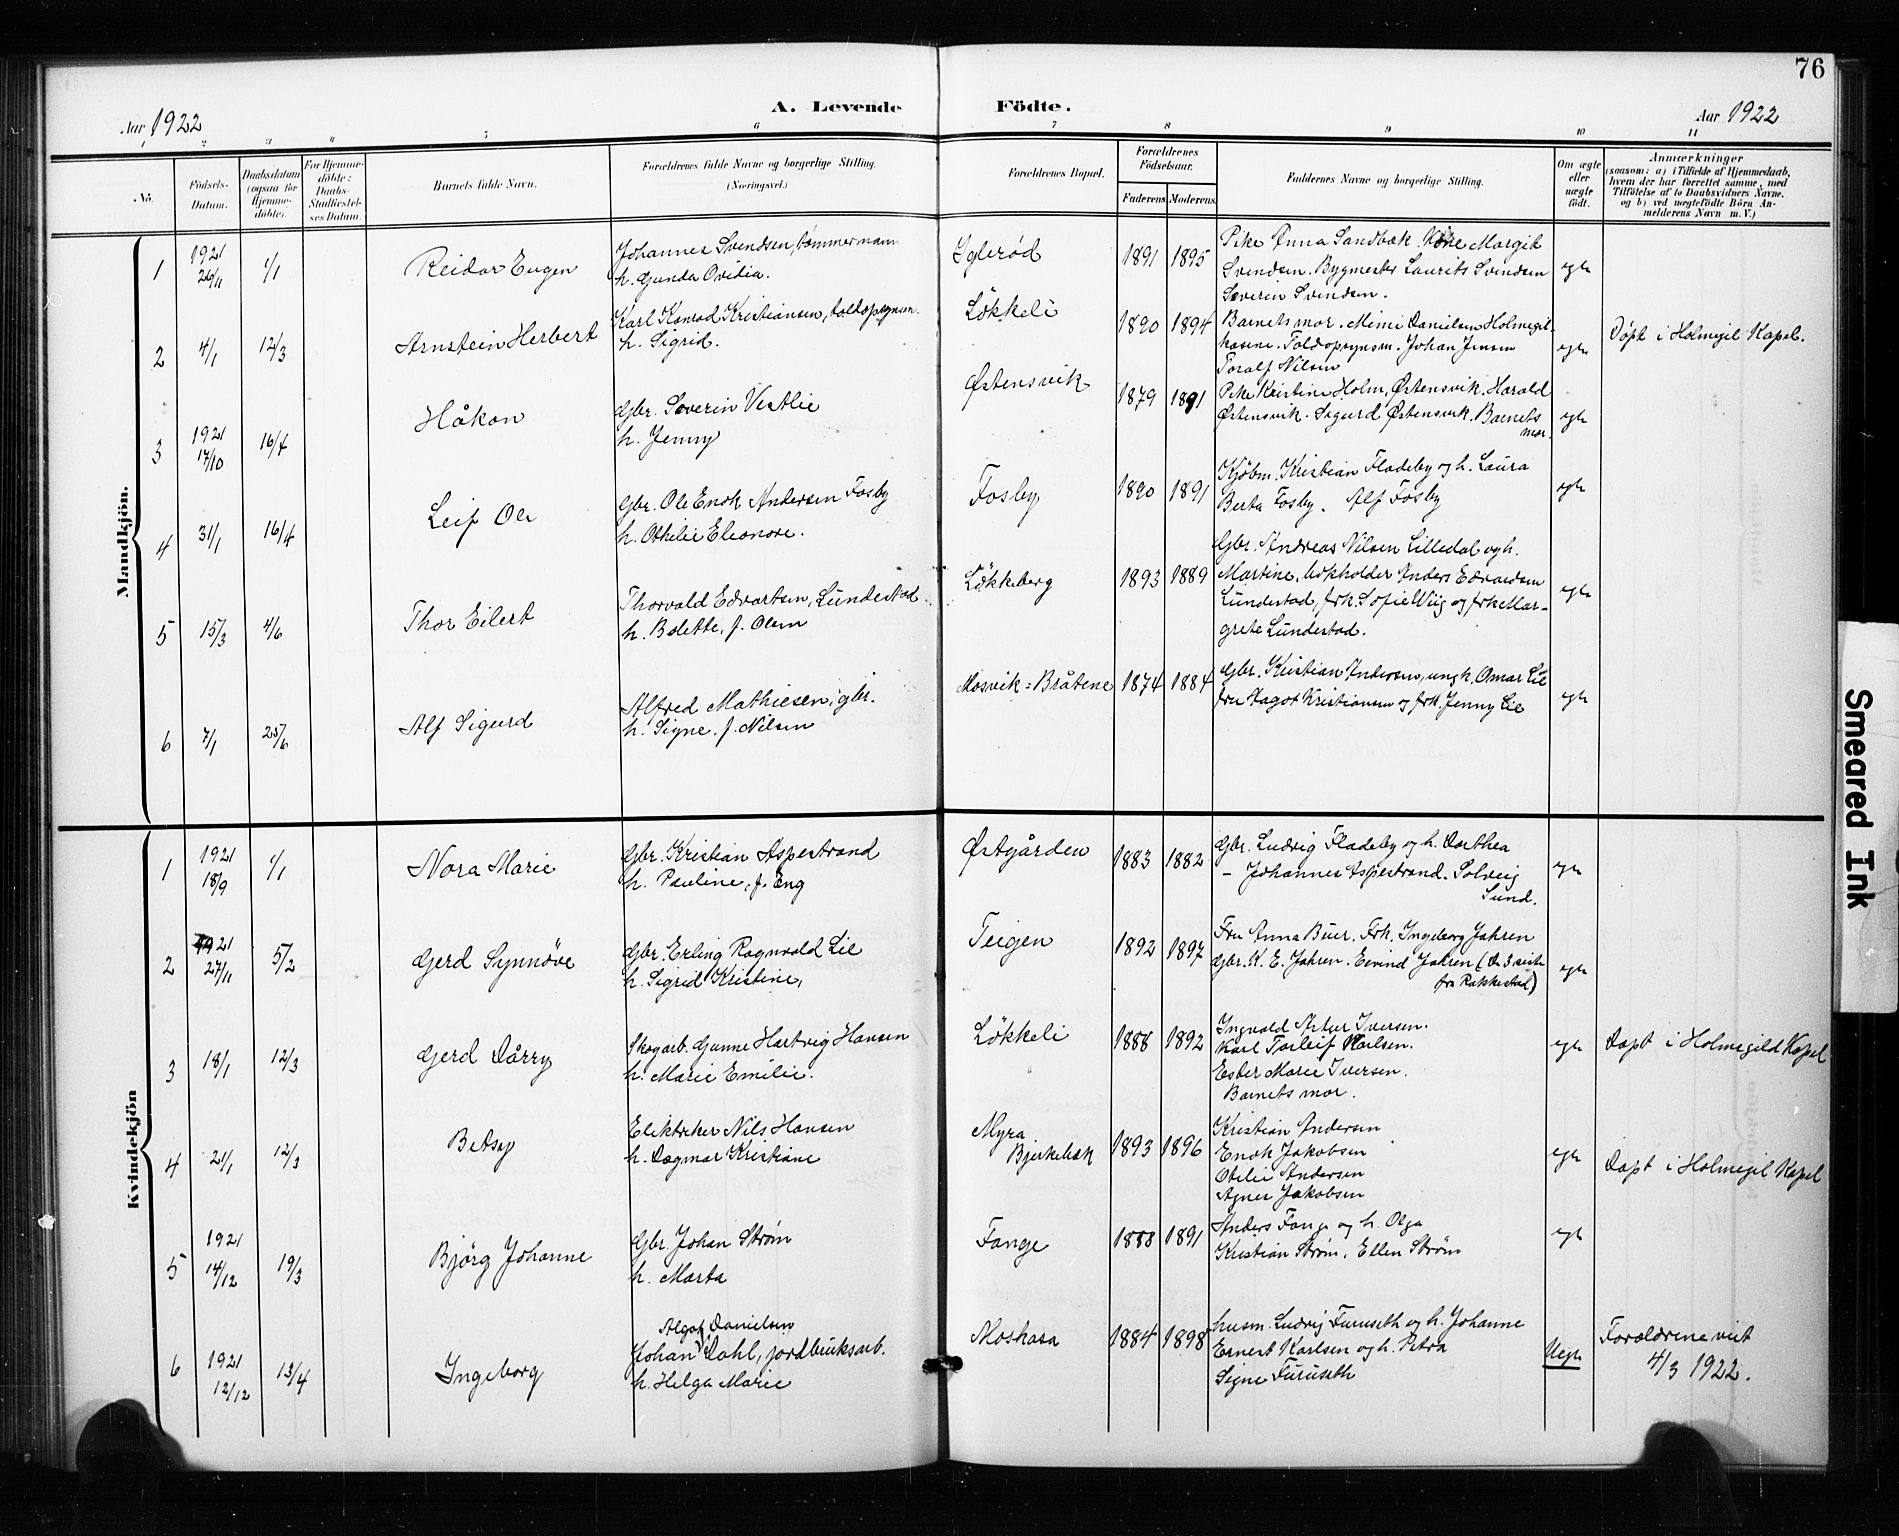 76
Aar 1922
A. Levende Födte.
Aar 1922
1 2 3 4 5 6 7 8 9 10 11
No.
Födsels-Datum.
Daabsdatum (ogsaa for Hjemme-döbte).
For Hjemme-döbte: Daabs-Stadfæstel-ses Datum.
Barnets fulde Navn.
Forældrenes fulde Navne og borgerlige Stilling.
(Næringsvei.)
Forældrenes Bopæl.
Forældrenes Födselsaar.
Faderens Moderens
Faddernes Navne og borgerlige Stilling.
Om ægte eller uægte födt.
Anmærkninger
(saasom: a) i Tilfælde af Hjemmedaab, hvem der har forrettet samme, med Tilföielse af to Daabsvidners Navne, og b) ved uægtefödte Börn An-melderens Navn m. V.)
Mandkjön.
1 1921 26/11 1/1 Reidar Eugen
Johannes Svendsen, tömmermann
h. Gunda Ovidia.
Iglerød 1891 1895
Pike Anna Sandbæk. Kone Margit
Svendsen. Bygmester Laurits Svendsen
Severin Svendsen.
egte
2 4/1 12/3 Arnstein Herbert
Karl Konrad Kristiansen, toldopsynsm.
h. Sigrid.
Lökkeli 1890 1894
Barnets mor. Mimi Danielsen Holmegil-
kasene. Toldopsynsm. Johan Jensen
Toralf Nilsen
egte
Döpt i Holmegil Kapel.
3 1921 17/10 16/4 Håkon
Gbr. Severin Vestlie
h. Jenny
Østensvik 1879 1891
Pike Kristine Holm, Østensvik. Harald
Østensvik. Sigurd Østensvik. Barnets
mor.
egte
4 31/1 16/4 Leif Ole
Gbr. Ole Enok Andersen Fosby
h. Othelie Eleonore.
Fosby 1890 1891
Kjöbm. Kristian Fladeby og h. Laura
Berta Fosby. Alf Fosby
egte
5 15/3 4/6 Thor Eilert
Thorvald Edvartsen, Lundestad.
h. Bolette, f. Olsen
Lökkeberg 1893 1889
Gbr. Andreas Nilsen Lilledal og h.
Martine, bokholder Anders Edvardsen
Lundestad, frk. Sofie Wiig og frk Mar-
grete Lundestad.
egte
6 7/1 25/6 Alf Sigurd
Alfred Mathiesen, gbr.
h. Signe. f. Nilsen
Mosvik=Bråtene 1874 1884
Gbr. Kristian Andersen, ungk. Omar Lie
fru Hagot Kristiansen og frk. Jenny Lie
egte
Kvindekjön
1 1921 18/9 1/1 Nora Marie
Gbr. Kristian Aspestrand
h. Pauline, f. Eng
Østgården 1883 1882
Gbr. Ludvig Fladeby og h. Dorthea
- Johannes Aspestrand. Solveig
Sund.
egte
2 1921 27/11 5/2 Gerd Synnöve
Gbr. Erling Ragnvald Lie
h. Sigrid Kristine,
Teigen 1892 1897
Fru Anna Buer. Frk. Ingeborg Jahren
Gbr. K. E. Jahren. Eivind Jahren (de 3 siste
fra Rakkestad)
egte
3 18/1 12/3 Gerd Dårry
Skogarb. Gunne Hartvig Hansen
h. Marie Emilie.
Lökkeli 1888 1892
Ingvald Artur Iversen.
Karl Torleif Karlsen.
Ester Marie Iversen.
Barnets mor.
egte
Döpt i Holmegild Kapel
4 21/1 12/3 Betsy
Elektriker Nils Hansen
h. Dagmar Kristiane
Myra
Bjerkebæk 1893 1896
Kristian Andersen
Enok Jakobsen
Otelie Andersen
Agnes Jakobsen
egte
Döpt i Holmegil Kapel
5 1921 14/12 19/3 Bjórg Johanne
Gbr. Johan Strøm
h. Marta
Fange 1888 1891
Anders Fange og h. Olga
Kristian Strøm, Ellen Strøm
egte
6 1921 12/12 13/4 Ingeborg
Algot Danielsen
Johan Dahl, jordbruksarb.
h. Helga Marie
Moskasa 1884 1898
husm. Ludvig Furuseth og h. Johanne
Ernest Karlsen og h. Petra
Signe Furuseth
Uegte
Forældrene viet
4/3 1922.
Smeared Ink